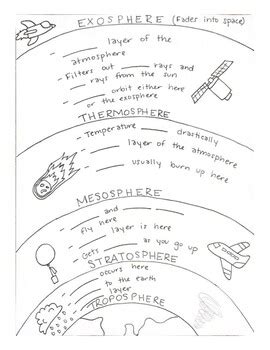 EXOSPHERE (Fades into space)
- ___ layer of the
atmosphere
- Filters out ___ rays and
___ rays from the sun
- ___ orbit either here
or the exosphere
THERMOSPHERE
- Temperature ___ drastically
- ___ layer of the atmosphere
- ___ usually burn up here
MESOSPHERE
- ___ and ___
fly here
- ___ layer is here
- Gets ___ as you go up
STRATOSPHERE
- ___ occurs here
- ___ to the earth
- ___ layer
TROPOSPHERE